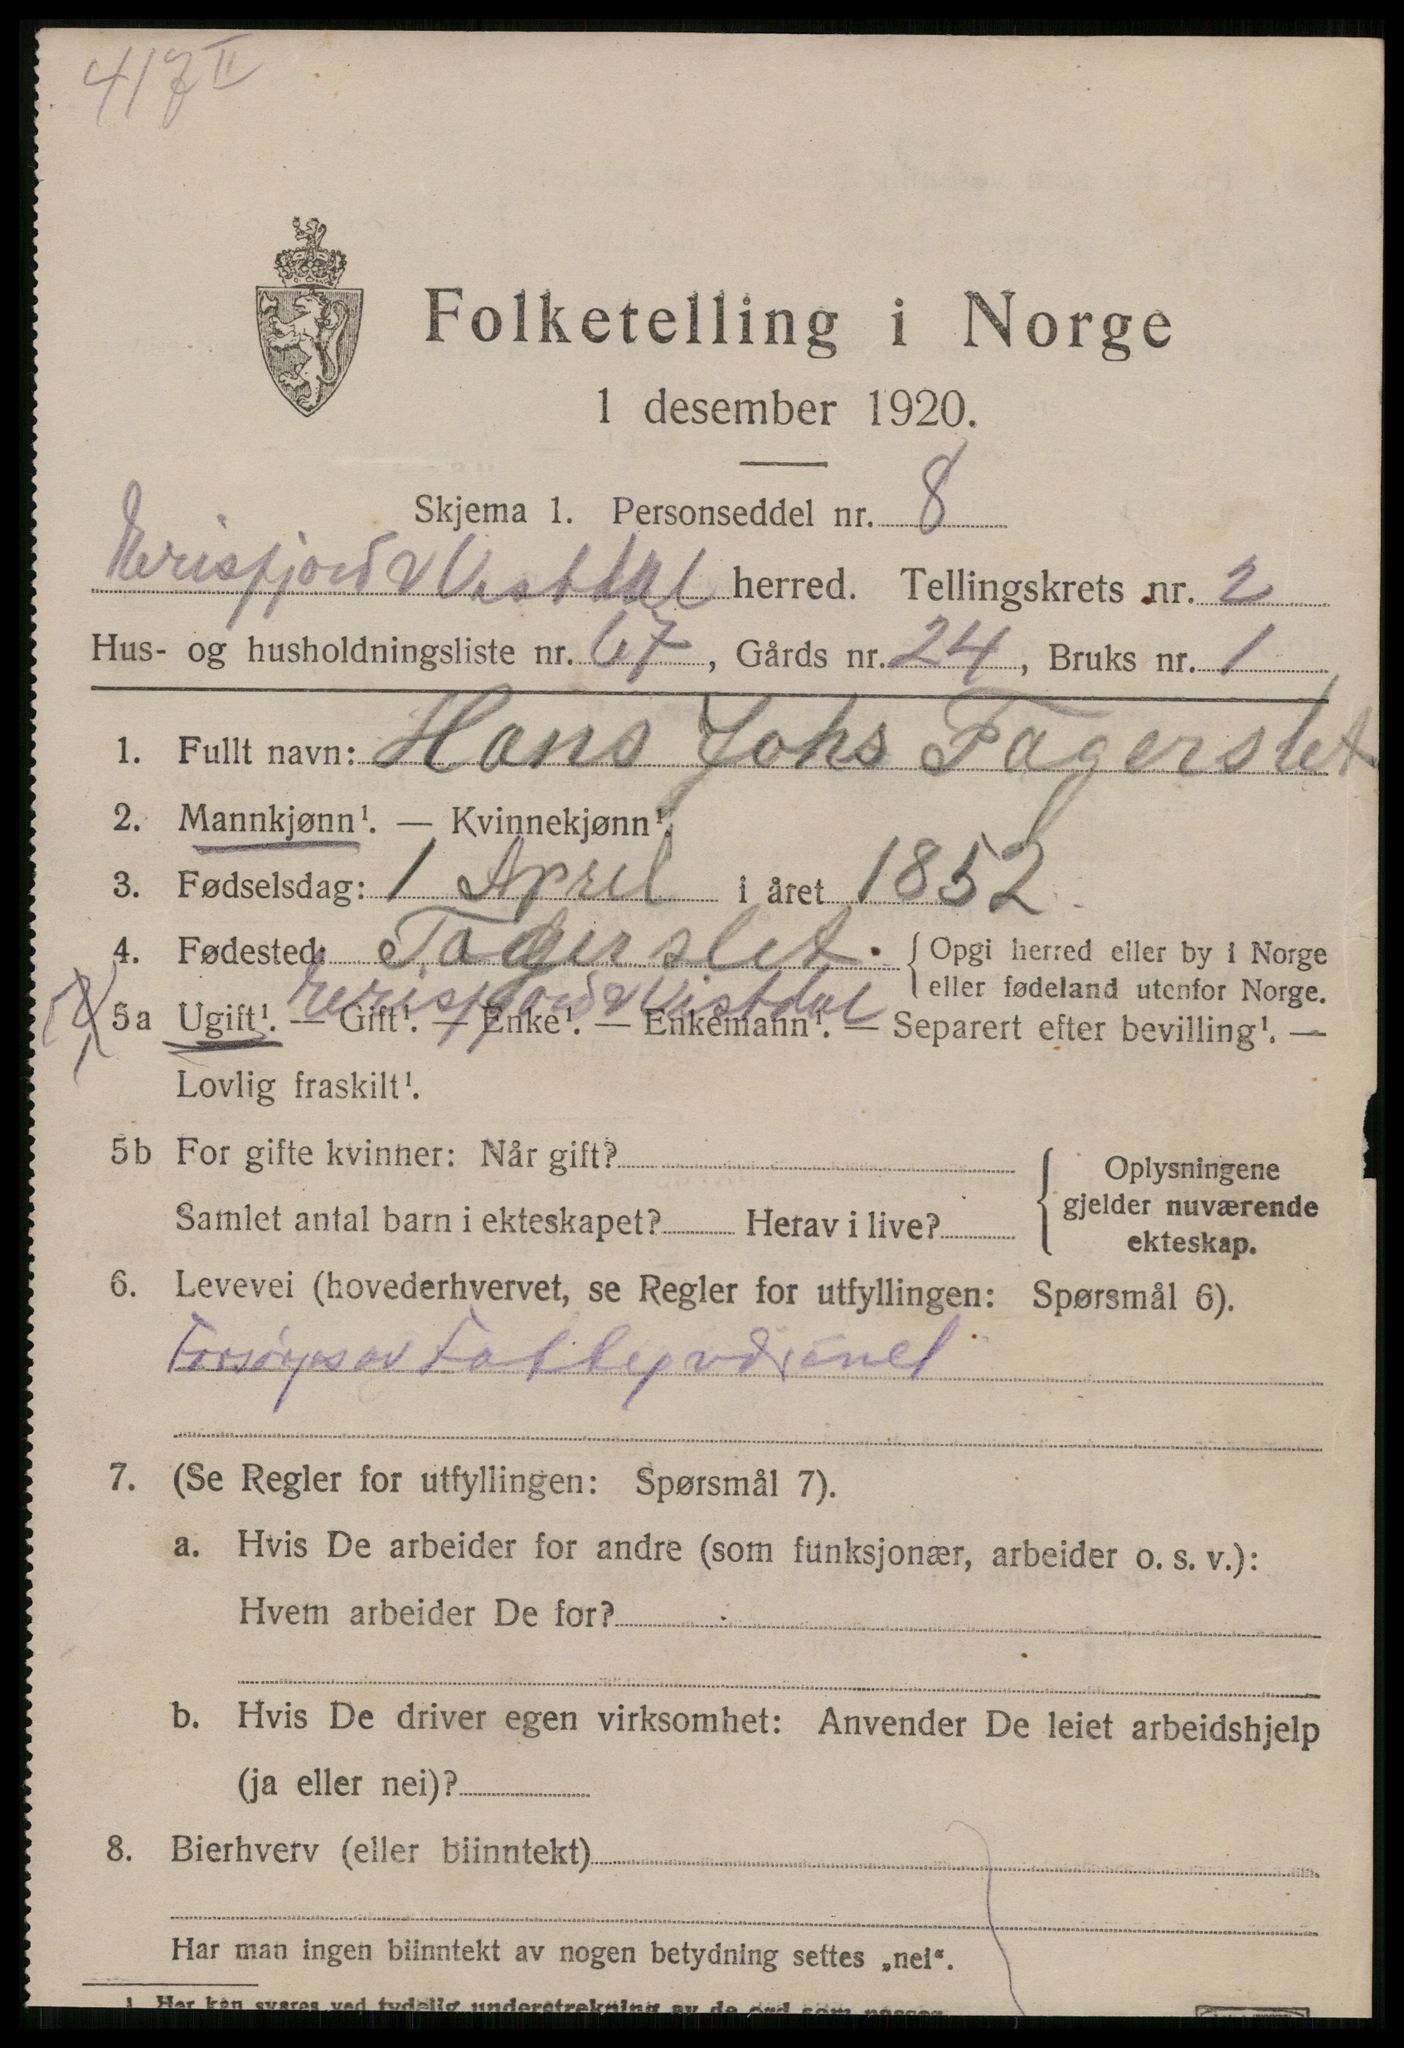 417 II
Folketelling i Norge
1 desember 1920.
Skjema 1. Personseddel nr. 8
Erisfjord & Vistdal herred. Tellingskrets nr. 2
Hus- og husholdningsliste nr. 67, Gårds nr. 24, Bruks nr. 1
1. Fullt navn: Hans Johs Fagerslet
2. Mannkjønn¹. — Kvinnekjønn¹.
3. Fødselsdag: 1 April i året 1852
4. Fødested: Fagerslet. { Opgi herred eller by i Norge
eller fødeland utenfor Norge.
Eerisfjord & Vistdal
5a Ugift¹. — Gift¹. — Enke¹. — Enkemann¹. — Separert efter bevilling¹. —
Lovlig fraskilt¹.
5b For gifte kvinner: Når gift?
Samlet antal barn i ekteskapet? Herav i live?
Oplysningene
gjelder nuværende
ekteskap.
6. Levevei (hovederhvervet, se Regler for utfyllingen: Spørsmål 6).
Forsørges av
7. (Se Regler for utfyllingen: Spørsmål 7).
a. Hvis De arbeider for andre (som funksjonær, arbeider o. s. v.):
Hvem arbeider De for?
b. Hvis De driver egen virksomhet: Anvender De leiet arbeidshjelp
(ja eller nei)?
8. Bierhverv (eller biinntekt)
Har man ingen biinntekt av nogen betydning settes „nei“.
1 Her kan svares ved tydelig understrekning av de ord som passer